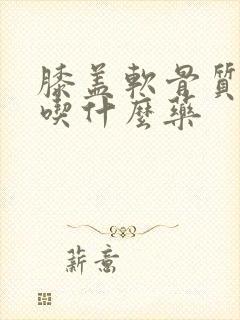 膝盖軟骨質
喫什麼藥
薪意